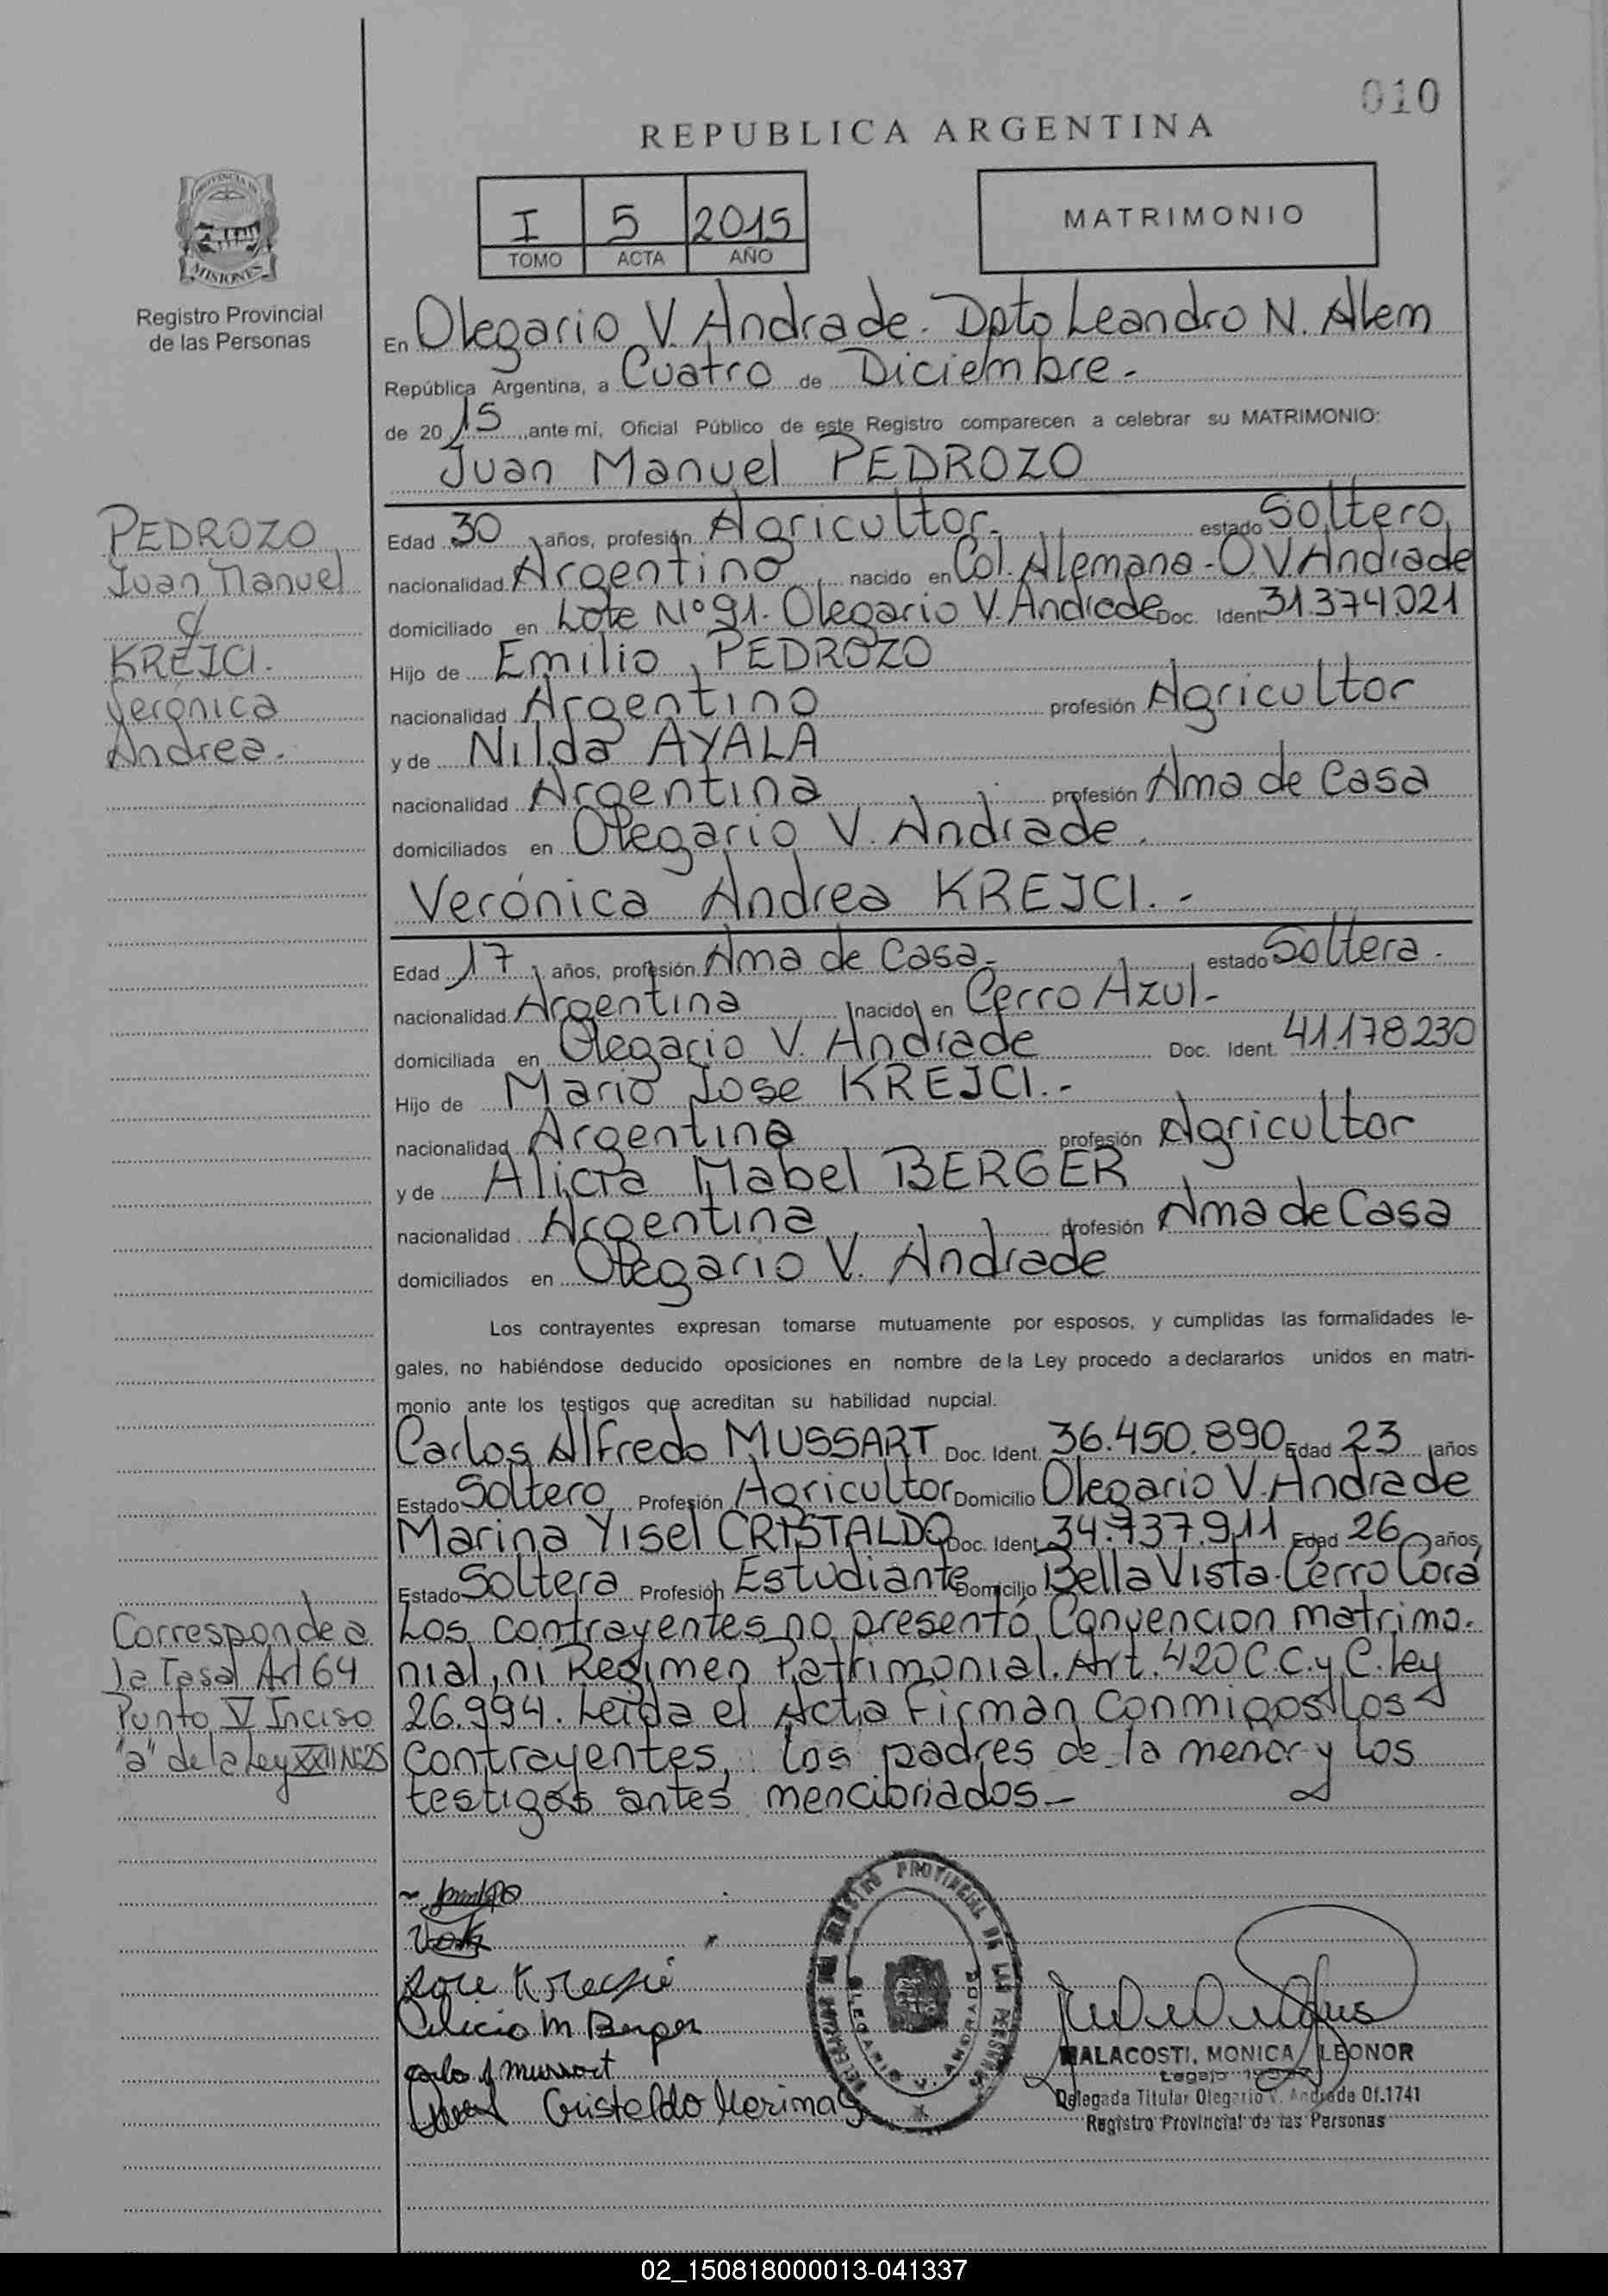 010
REPUBLICA ARGENTINA
PROVINCIA DE
MISIONES
Registro Provincial
de las Personas
I 5 2015
TOMO ACTA AÑO
MATRIMONIO
En Olegario V. Andrade. Dpto Leandro N. Alem
República Argentina, a Cuatro de Diciembre.-
de 20 15, ante mí, Oficial Público de este Registro comparecen a celebrar su MATRIMONIO:
Juan Manuel PEDROZO
PEDROZO
Juan Manuel
c/
KREJCI.
Verónica
Andrea.-
Edad 30 años, profesión Agricultor.- estado Soltero
nacionalidad Argentino nacido en Col. Alemana - O.V. Andrade
domiciliado en Lote Nº 91. Olegario V. Andrade Doc. Ident. 31.374.021
Hijo de Emilio PEDROZO
nacionalidad Argentino profesión Agricultor
y de Nilda AYALA
nacionalidad Argentina profesión Ama de Casa
domiciliados en Olegario V. Andrade.
Verónica Andrea KREJCI.-
Edad 17 años, profesión Ama de Casa.- estado Soltera.
nacionalidad Argentina nacido en Cerro Azul-
domiciliada en Olegario V. Andrade Doc. Ident. 41.178230
Hijo de Mario Jose KREJCI.-
nacionalidad Argentina profesión Agricultor
y de Alicia Mabel BERGER
nacionalidad Argentina profesión Ama de Casa
domiciliados en Olegario V. Andrade
Los contrayentes expresan tomarse mutuamente por esposos, y cumplidas las formalidades le-
gales, no habiéndose deducido oposiciones en nombre de la Ley procedo a declararlos unidos en matri-
monio ante los testigos que acreditan su habilidad nupcial.
Carlos Alfredo MUSSART Doc. Ident. 36.450.890 Edad 23 años
Estado Soltero Profesión Agricultor Domicilio Olegario V. Andrade
Marina Yisel CRISTALDO Doc. Ident. 34.737.911 Edad 26 años
Estado Soltera Profesión Estudiante Domicilio Bella Vista-Cerro Corá
Los contrayentes no presentó Convencion matrimo-
nial, ni Regimen Patrimonial. Art. 420 C.C. y C. Ley
26.994. Leida el Acta Firman conmigo los
contrayentes, los padres de la menor y los
testigos antes mencionados.-
Corresponde a
la Tasa Art 64
Punto V Inciso
"a" de la Ley XXII Nº25
Jose Krejci
Alicia M Berger
Carlos A Mussart
Cristaldo Marina G
REGISTRO PROVINCIAL DE LAS PERSONAS
OLEGARIO V. ANDRADE
MALACOSTI, MONICA LEONOR
Legajo
Delegada Titular Olegario V. Andrade Of.1741
Registro Provincial de las Personas
02_150818000013-041337